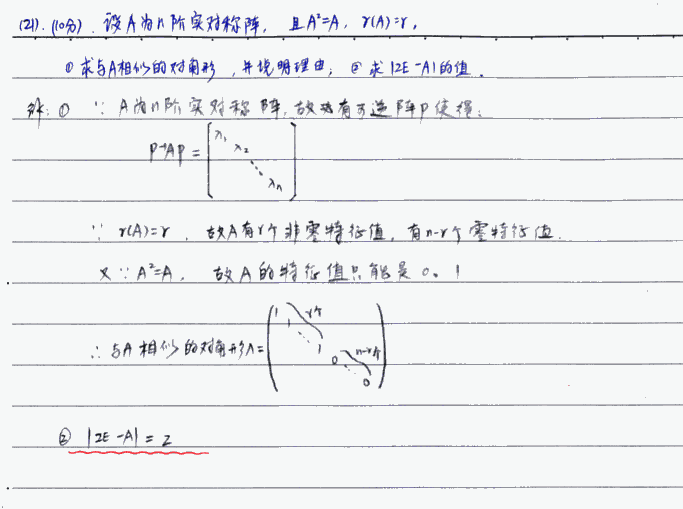 (21). (10分). 设A为n阶实对称阵, 且A²=A, r(A)=r,
① 求与A相似的对角形, 并说明理由; ② 求 |2E-A| 的值.
解: ① ∵ A为n阶实对称阵, 故有可逆阵P使得:
P⁻¹AP = [λ₁ λ₂ ⋱ λn]
∵ r(A)=r, 故A有r个非零特征值, 有n-r个零特征值.
又∵ A²=A, 故A的特征值只能是0。1
∴ 与A相似的对角形Λ= (1 1 ⋱ 1 r个 0 ⋱ 0 n-r个)
② |2E-A| = 2